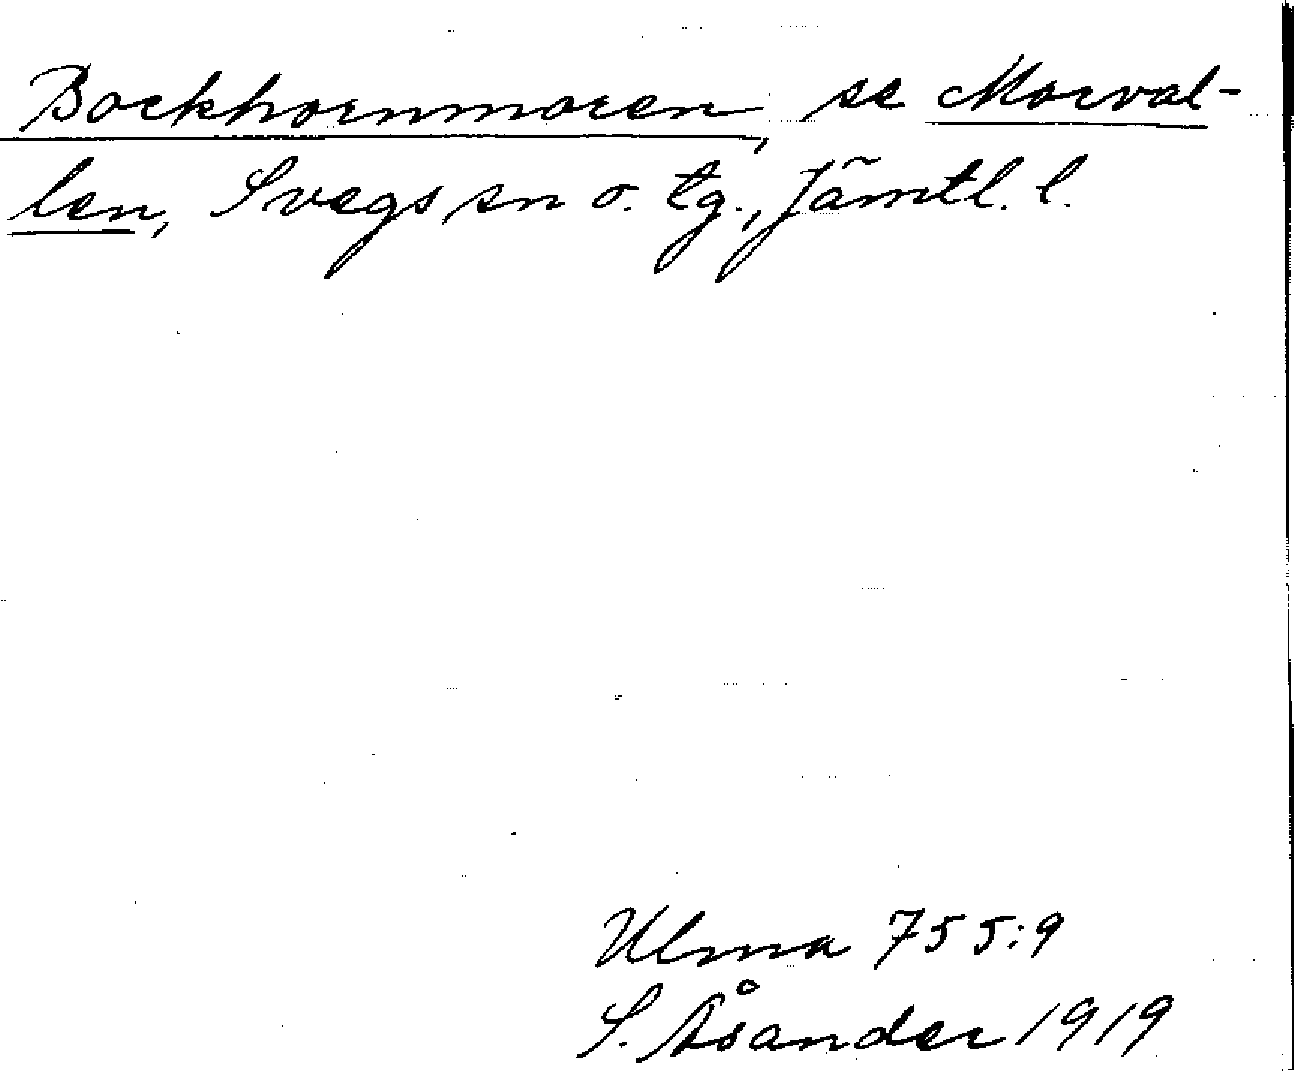 Bockhornmoren, se Morval-
len, Svegs sn o. tg., Jämtl. l.
Ulma 755:9
S. Åsander 1919